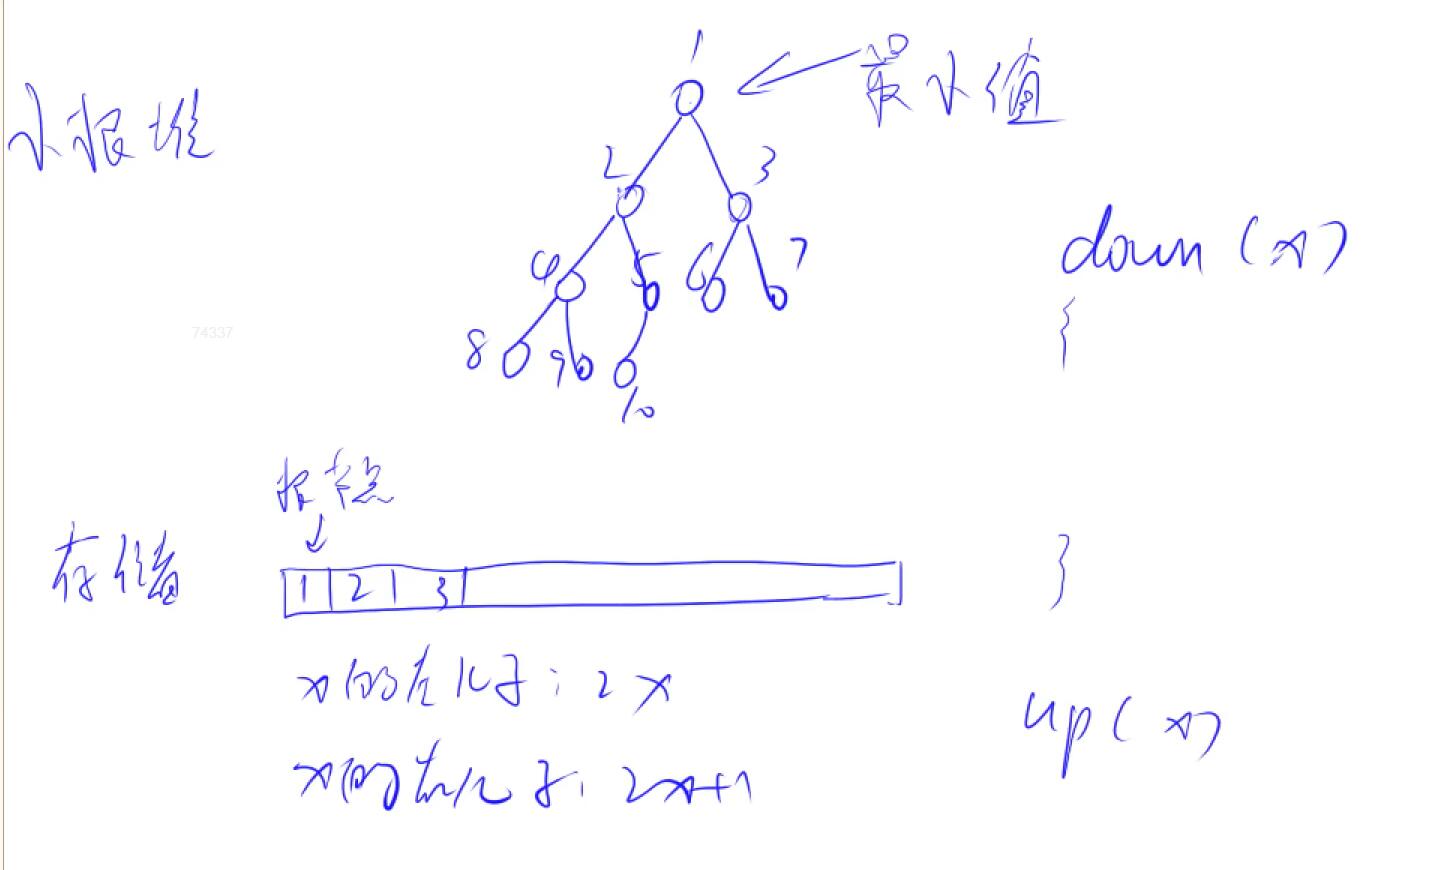 1
小根堆
最小值
2
3
down(x)
4
5
6
7
{
74337
8
9
10
根节点
↓
存储
1 2 3
}
x的左儿子:2x
up(x)
x的右儿子:2x+1